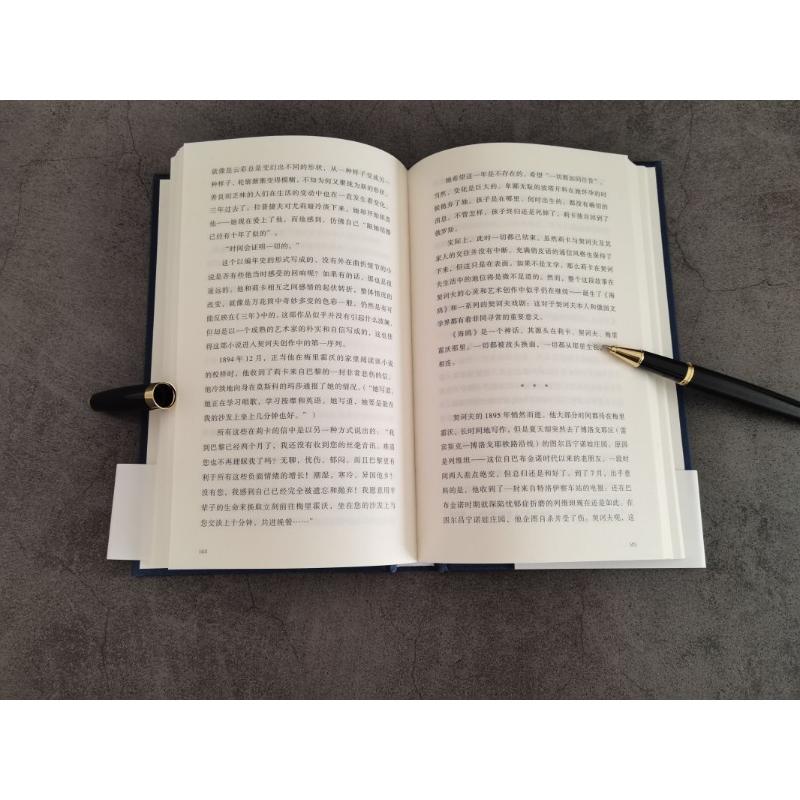 就像是云彩总是变幻出不同的形状，从一种样子变成另一
种样子，轮廓渐渐变得模糊，不知为何又聚拢为新的形状，
善良而乏味的人们在生活的变动中也在一直发生着变化。
三年过去了。拉普捷夫对尤莉娅冷淡下来，她却开始依恋
他——她现在爱上了他。而他感到，仿佛自己“跟她结婚
已经有十年了似的”。
“时间会证明一切的。”
这个以编年史的形式写成的、没有外在曲折情节的小
说是否有些他当时感受的回响呢？如果有的话，那也是很
遥远的。他和莉卡相互之间感情的起伏转折，整体情绪的
改变，就像是万花筒中奇妙多变的色彩一般，仍然是有可
能反映在《三年》中的。这部作品似乎并没有引起什么波澜，
但却是以一个成熟的艺术家的朴实和自信写成的，这也使
得这部小说进入契诃夫创作中的第一序列。
1894 年 12 月，正当他在梅里霍沃的家里阅读该小说
的校样时，他收到了莉卡来自巴黎的一封非常悲伤的信。
他冷淡地向身在莫斯科的玛莎通报了她的情况。（“她写道，
她正在学习唱歌，学习按摩和英语。她写道，她要是能在
我的沙发上坐上几分钟也好。”）
所有这些在莉卡的信中是以另一种方式说出的。“我
到巴黎已经两个月了，我还没有收到您的丝毫音讯。难道
您也不再理睬我了吗？无聊，忧伤，郁闷。而且巴黎更有
利于所有这些负面情绪的增长！潮湿，寒冷，异国他乡！
没有您，我感到自己已经完全被遗忘和抛弃！我愿意用半
辈子的生命来换取立刻前往梅里霍沃，坐在您的沙发上与
您交谈上十分钟，共进晚餐……”
她希望这一年是不存在的，希望“一切都如同往昔”。
当然，变化是巨大的。卑鄙无耻的波塔片科在她怀孕的时
候抛弃了她。孩子是在哪里、何时出生的，都没有确切的
消息。不管怎样，孩子终归还是死掉了。莉卡独自回到了
俄罗斯。
实际上，此时一切都已结束。虽然莉卡与契诃夫及其
家人的交往并没有中断，充满俏皮语的通信风格也保持了
下来，但这只是在表面。如果不是文学，那么莉卡在契诃
夫生活中的地位将是微不足道的。然而，整个这段故事在
契诃夫的心灵和艺术创作中似乎仍在继续——诞生了《海
鸥》和一系列的契诃夫戏剧：这对于契诃夫本人和俄国文
学界都有着非同寻常的重要意义。
《海鸥》是一个神话，其源头在莉卡、契诃夫、梅里
霍沃那里。一切都被改头换面，一切都从那里生长
相连。
* * *
契诃夫的 1895 年悄然而逝。他大部分时间都待在梅里
霍沃，长时间地写作，但是夏天却突然去了博洛戈耶区（雷
宾斯克—博洛戈耶铁路沿线）的图尔昌宁诺娃庄园。原因
是列维坦——这位自巴布金诺时代以来的老朋友，一段时
间两人差点绝交，但总归还是和好了。到了 7 月，出乎意
料的是，他收到了一封来自特洛伊察车站的电报。还在巴
布金诺时期就深陷忧郁症折磨的列维坦现在还是如此。在
图尔昌宁诺娃庄园，他企图自杀并受了伤。契诃夫现，这